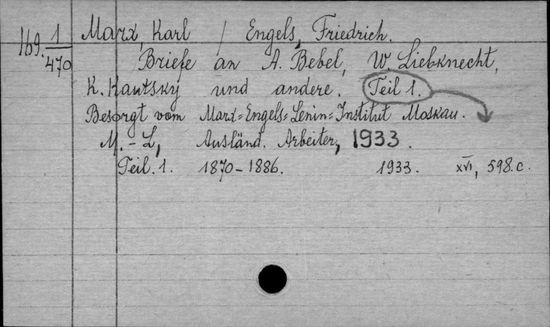 169. 1/470
Marx, Karl / Engels, Friedrich.
Briefe an A. Bebel, W. Liebknecht,
K. Kautsky und andere. Teil 1.
Besorgt vom Marx=Engels=Lenin=Institut Moskau.
M.-L, Ausländ. Arbeiter, 1933.
Teil. 1. 1870-1886. 1933. XVI, 598.c.